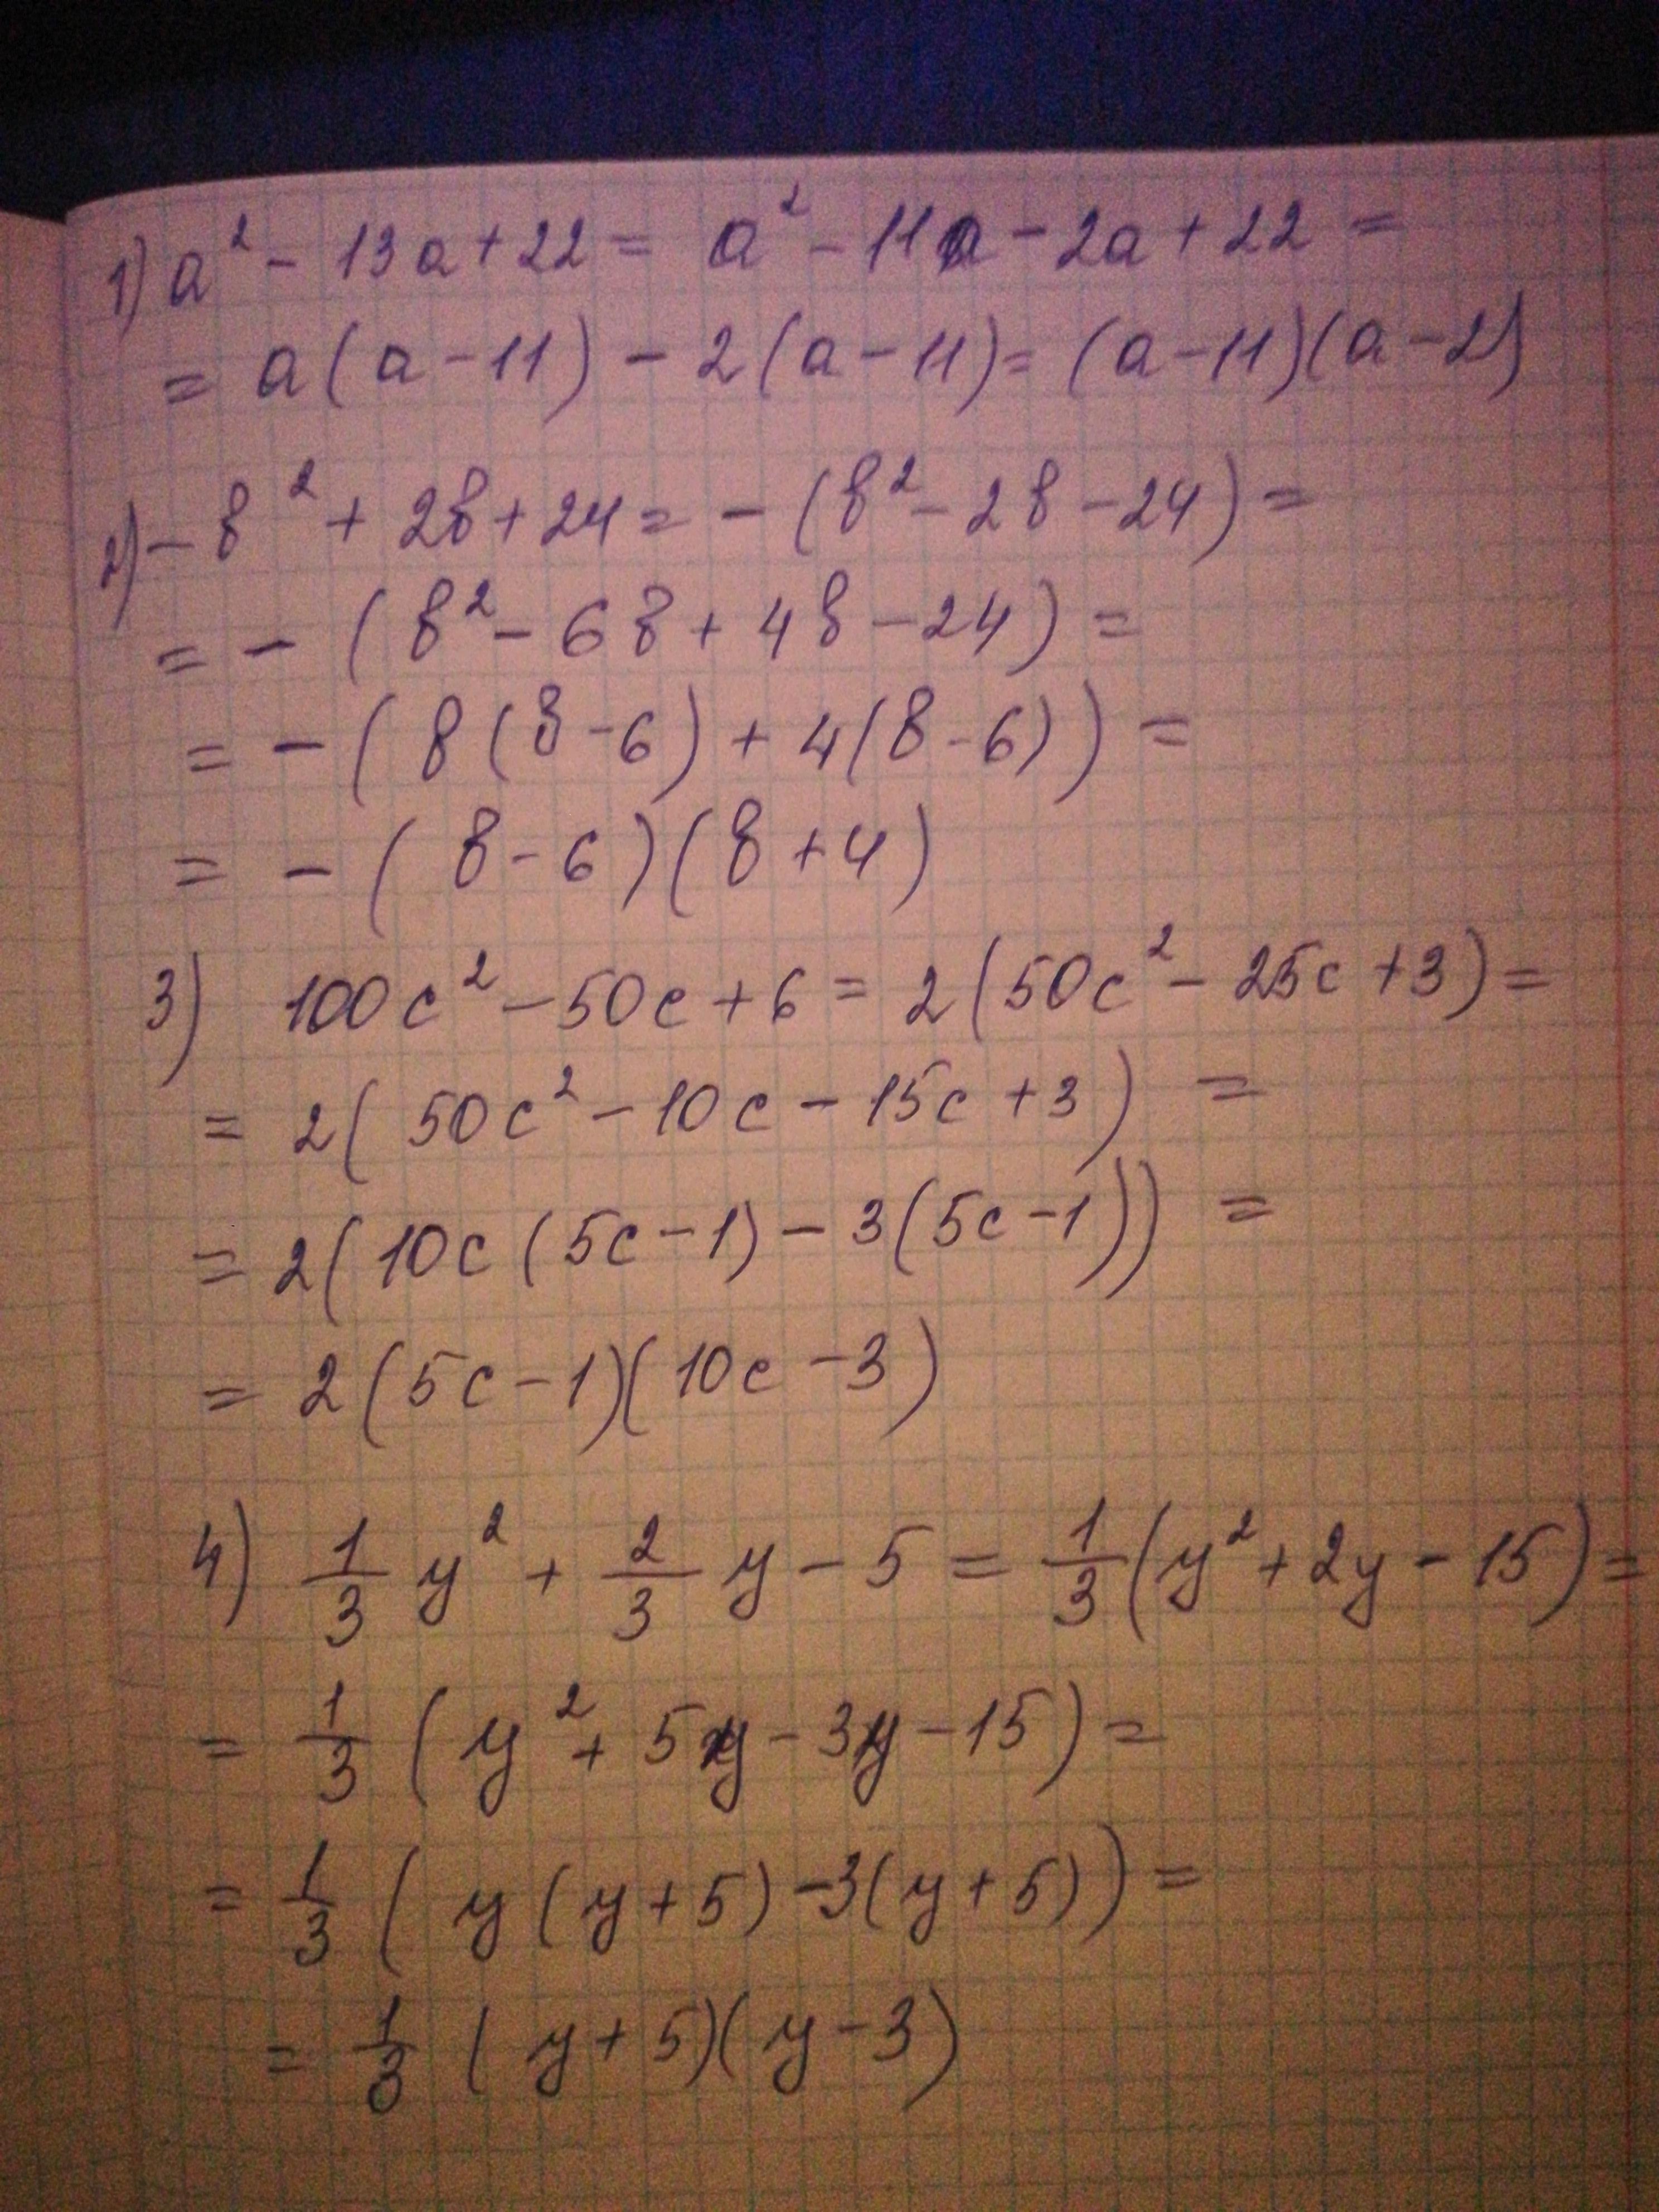 1) a² - 13a + 22 = a² - 11a - 2a + 22 =
= a(a - 11) - 2(a - 11) = (a - 11)(a - 2)
2) - b² + 2b + 24 = - (b² - 2b - 24) =
= - (b² - 6b + 4b - 24) =
= - (b(b - 6) + 4(b - 6)) =
= - (b - 6)(b + 4)
3) 100c² - 50c + 6 = 2(50c² - 25c + 3) =
= 2(50c² - 10c - 15c + 3) =
= 2(10c(5c - 1) - 3(5c - 1)) =
= 2(5c - 1)(10c - 3)
4) 1/3 y² + 2/3 y - 5 = 1/3 (y² + 2y - 15) =
= 1/3 (y² + 5y - 3y - 15) =
= 1/3 (y(y + 5) - 3(y + 5)) =
= 1/3 (y + 5)(y - 3)